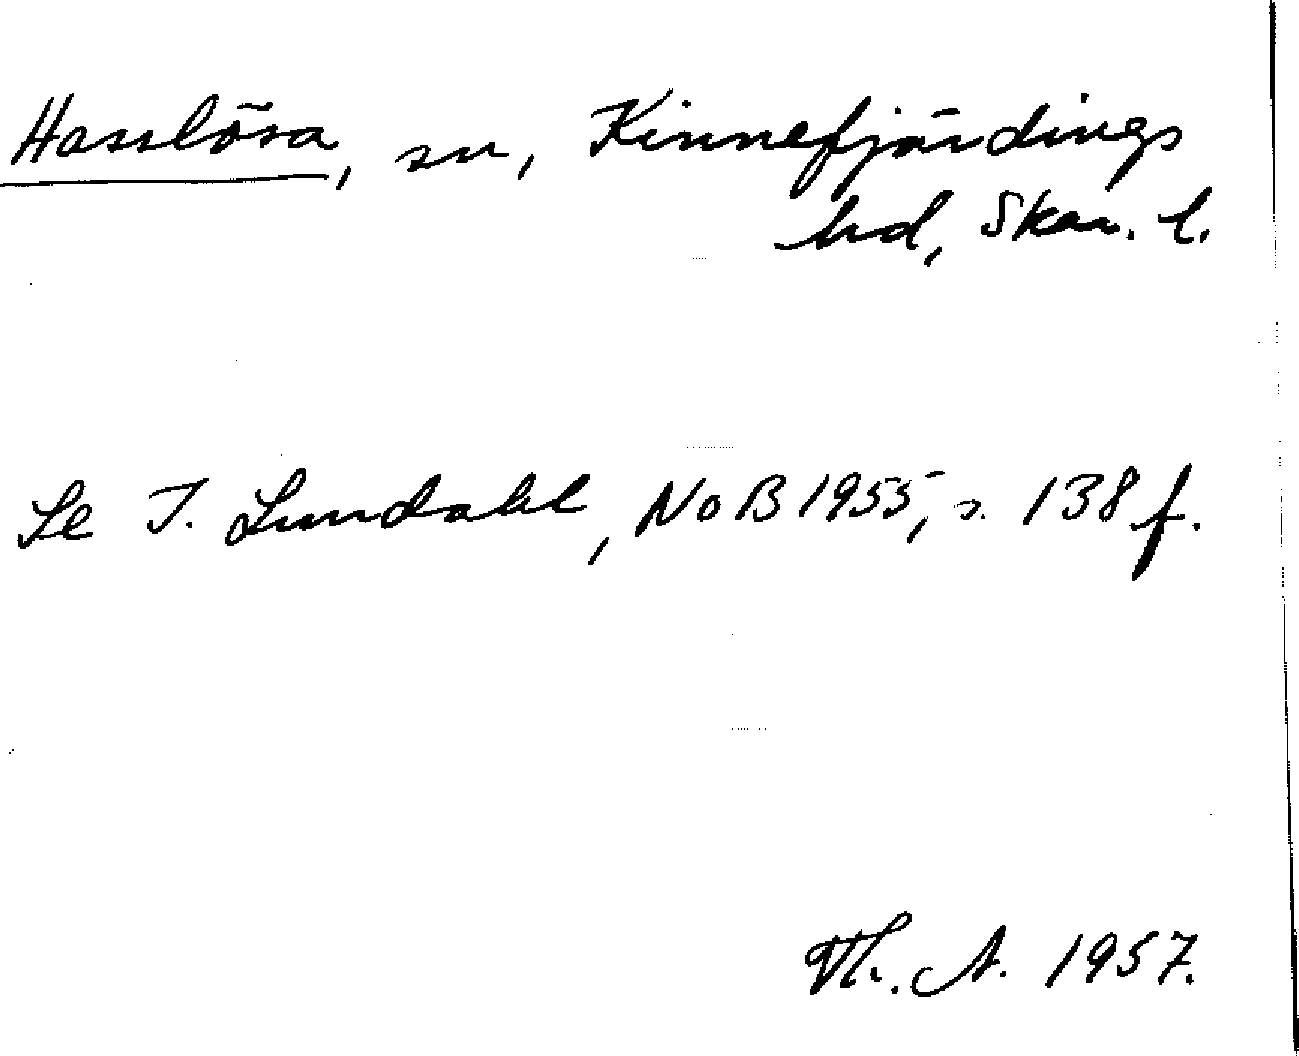 Hasslösa, sn, Kinnefjärdings
hd, Skar. l.
Se I. Lundahl, NoB 1955, s. 138 f.
Th. A. 1957.